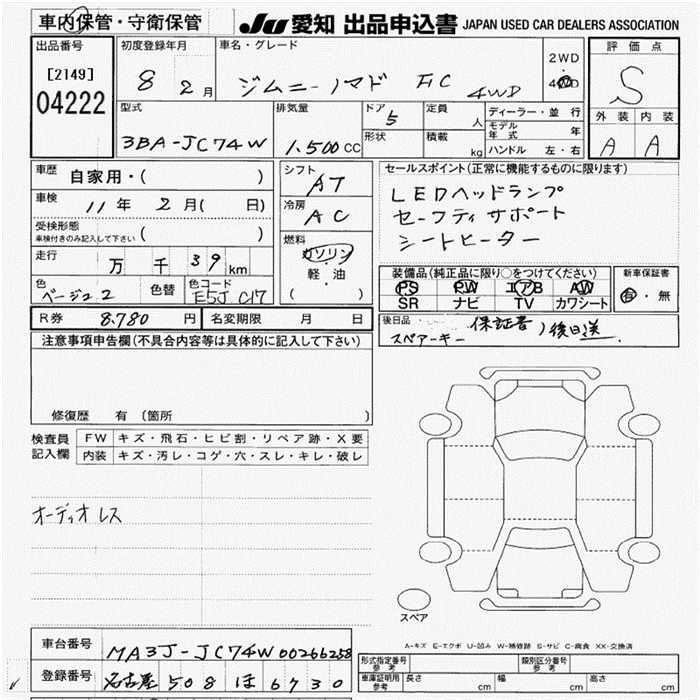 車内保管・守衛保管
JU 愛知 出品申込書 JAPAN USED CAR DEALERS ASSOCIATION
出品番号
[2149]
04222
初度登録年月
8 2月
車名・グレード
ジムニーノマド FC 4WD
2WD
4WD
評価点
S
外装 内装
A A
型式
3BA-JC74W
排気量
1.500CC
ドア 5
形状
定員 人
積載 kg
ディーラー・並行
モデル年式 年
ハンドル 左・右
車歴 自家用・( )
車検 11年 2月( 日)
受検形態
車検付きのみ記入して下さい ( )
走行 万 千 39km
色 ベージュ2 色替
色コード E5J C17
シフト
AT
冷房
AC
燃料
ガソリン
・
軽油
( )
セールスポイント(正常に機能するものに限ります)
LEDヘッドランプ
セーフティサポート
シートヒーター
装備品(純正品に限り○をつけてください)
PS PW エアB AW
SR ナビ TV カワシート
新車保証書
有・無
R券 8.780円 名変期限 月 日
後日品
保証書
スペアーキー ) 後日送
注意事項申告欄(不具合内容等は具体的に記入して下さい)
修復歴 有 〔箇所
検査員記入欄
FW キズ・飛石・ヒビ割・リペア跡・X要
内装 キズ・汚レ・コゲ・穴・スレ・キレ・破レ
オーディオレス
スペア
A-キズ E-エクボ U-凹み W-補修跡 S-サビ C-腐食 XX-交換済
車台番号 MA3J-JC74W 00266258
登録番号 名古屋 508 ほ 6730
形式指定番号 参考
類別区分番号 参考
車庫証明用 参考 長さ cm 幅 cm 高さ cm